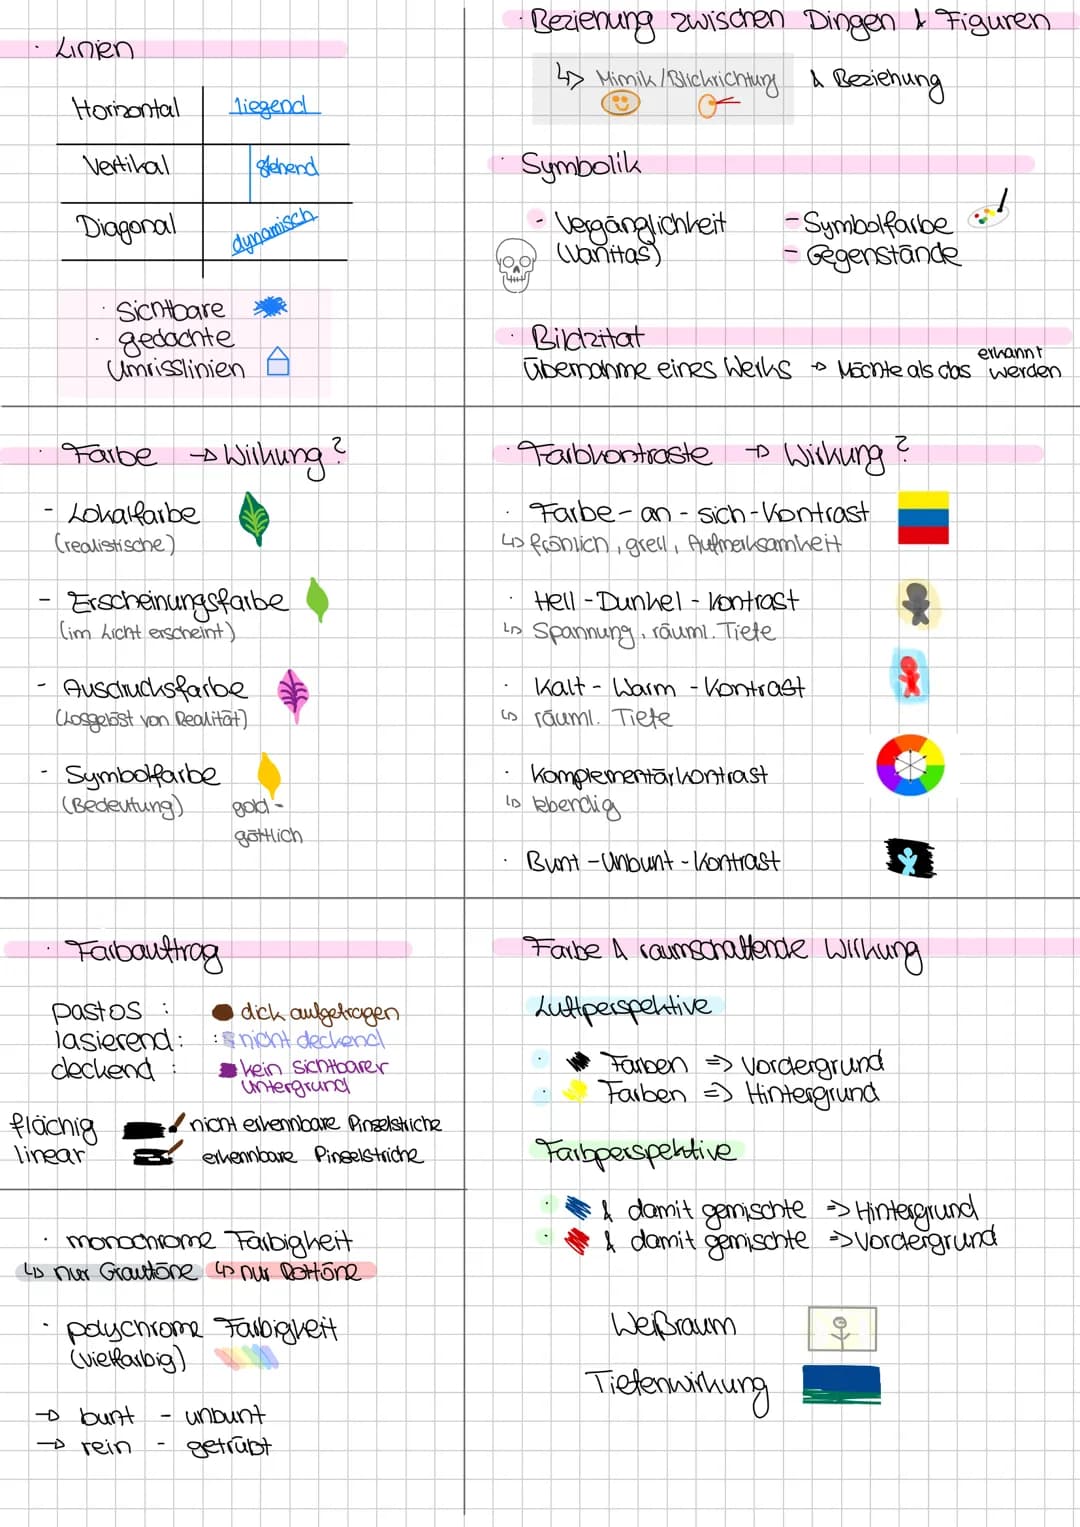 · Linien
Horizontal liegend
Vertikal stehend
Diagonal dynamisch
· Sichtbare
· gedachte
Umrisslinien
· Beziehung zwischen Dingen & Figuren
↳ Mimik/Blickrichtung & Beziehung
· Symbolik
- Vergänglichkeit
(Vanitas)
- Symbolfarbe
- Gegenstände
· Bildzitat
Übernahme eines Werks → Möchte als das erkannt werden
· Farbe → Wirkung?
- Lokalfarbe
(realistische)
- Erscheinungsfarbe
(im Licht erscheint)
- Ausdrucksfarbe
(Losgelöst von Realität)
- Symbolfarbe
(Bedeutung) gold -
göttlich
· Farbkontraste → Wirkung?
· Farbe-an-sich-Kontrast
↳ fröhlich, grell, Aufmerksamkeit
· Hell-Dunkel-Kontrast
↳ Spannung, räuml. Tiefe
· Kalt-Warm-Kontrast
↳ räuml. Tiefe
· Komplementärkontrast
↳ lebendig
· Bunt-Unbunt-Kontrast
· Farbauftrag
pastos : dick aufgetragen
lasierend: : nicht deckend
deckend : kein sichtbarer
untergrund
flächig nicht erkennbare Pinselstriche
linear erkennbare Pinselstriche
· monochrome Farbigkeit
↳ nur Grautöne ↳ nur Rottöne
· polychrome Farbigkeit
(vielfarbig)
→ bunt - unbunt
→ rein - getrübt
Farbe & raumschaffende Wirkung
Luftperspektive
· Farben => Vordergrund
· Farben => Hintergrund
Farbperspektive
· & damit gemischte => Hintergrund
· & damit gemischte => Vordergrund
Weißraum
Tiefenwirkung